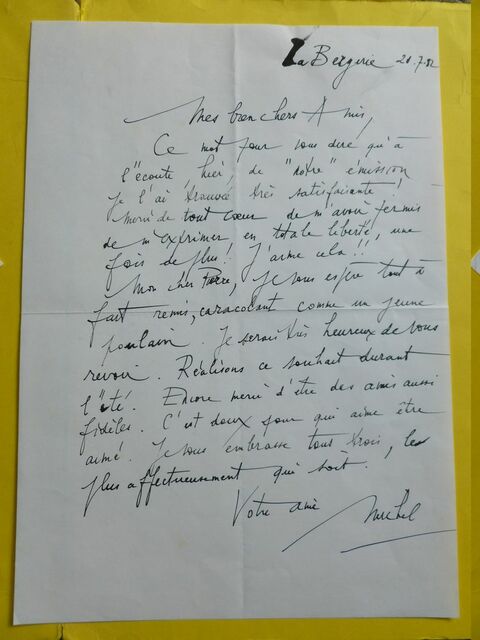 La Bergerie 20.7.82
Mes bien chers Amis,
Ce mot pour vous dire qu'à
l'écoute, hier, de "notre" émission
je l'ai trouvée très satisfaisante !
Merci de tout cœur de m'avoir permis
de m'exprimer en totale liberté, une
fois de plus ! J'aime cela !!
Mon cher Pierre, je vous espère tout à
fait remis, caracolant comme un jeune
poulain. Je serais très heureux de vous
revoir. Réalisons ce souhait durant
l'été. Encore merci d'être des amis aussi
fidèles. C'est doux pour qui aime être
aimé. Je vous embrasse tous trois, le
plus affectueusement qui soit.
Votre ami Michel